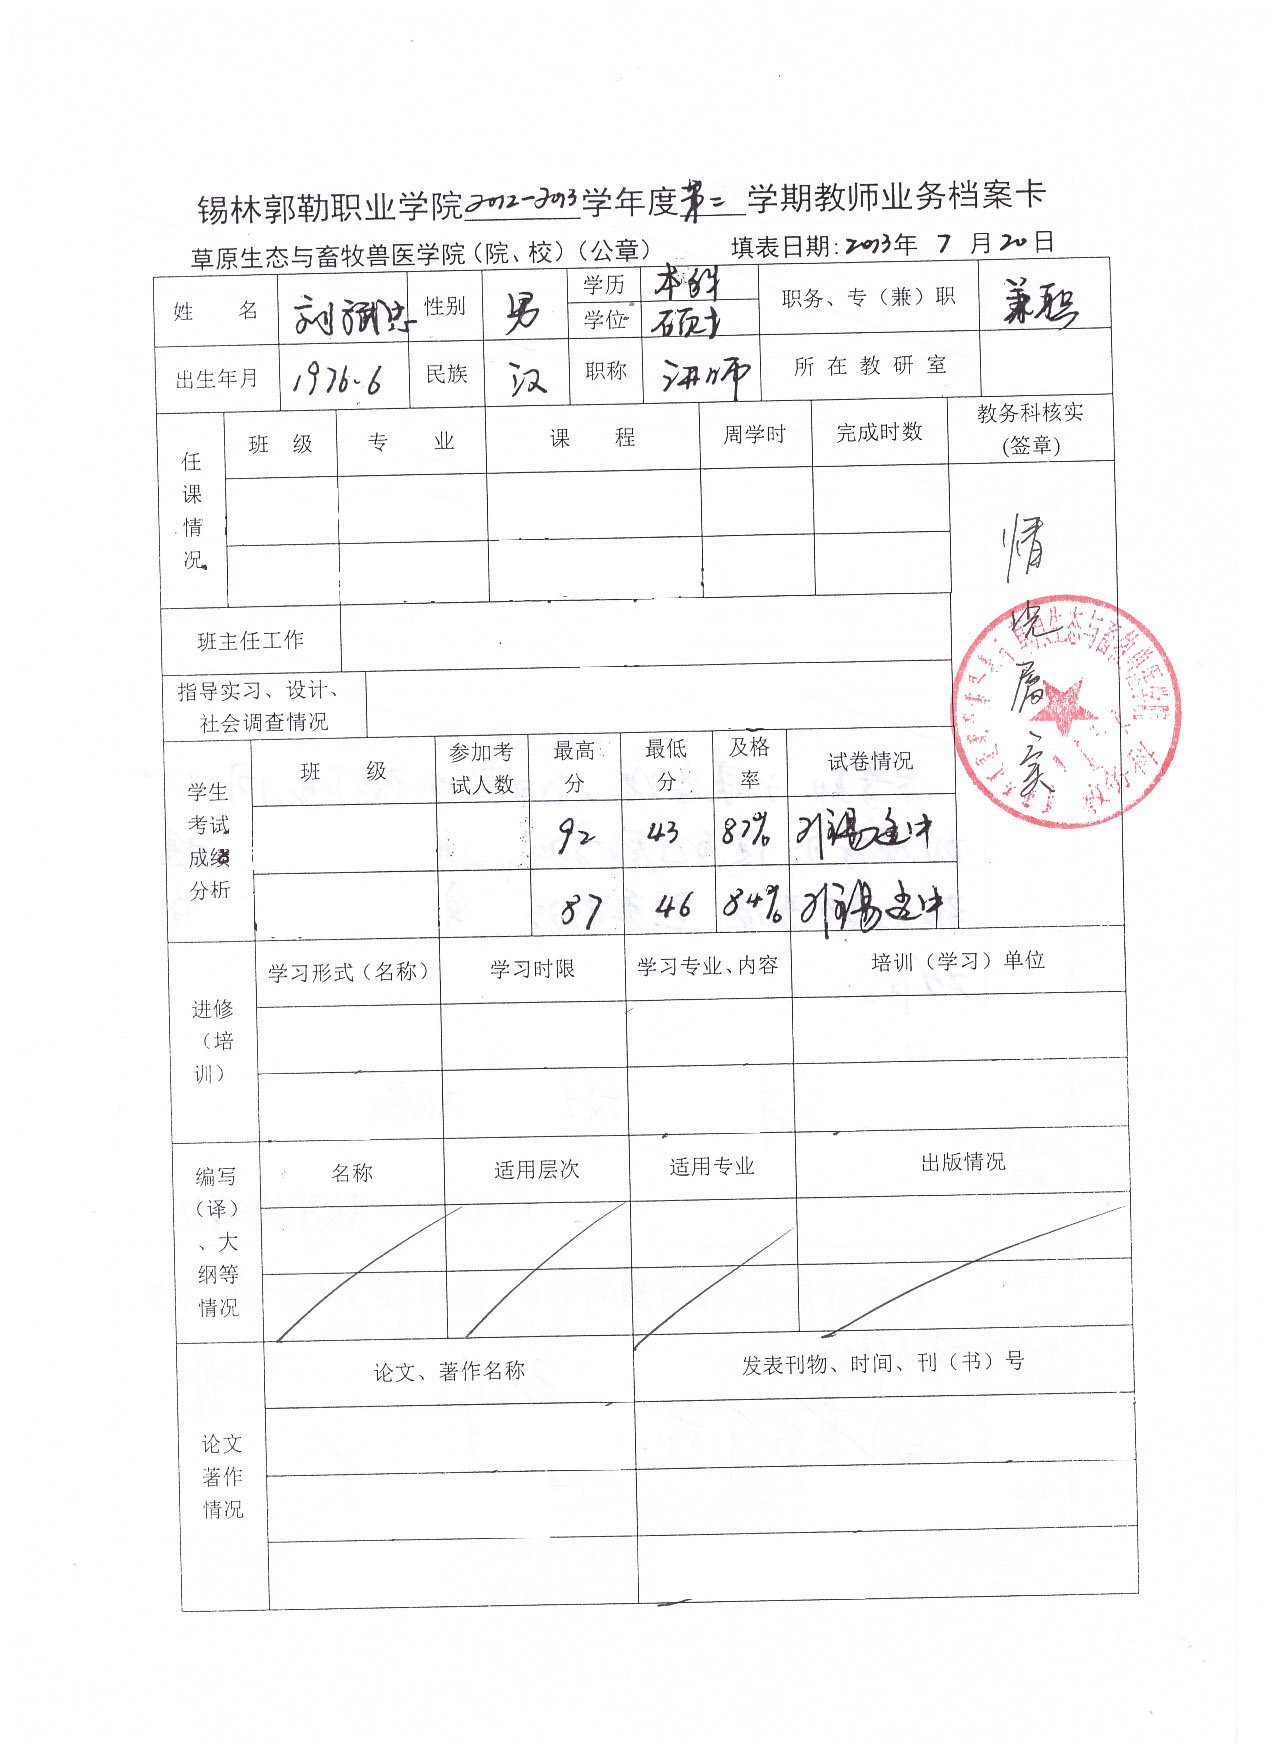 锡林郭勒职业学院2012-2013学年度第二学期教师业务档案卡
草原生态与畜牧兽医学院（院、校）（公章） 填表日期：2013年 7 月 20 日
姓 名 刘 忠 性别 男 学历 本科 职务、专（兼）职 兼职
学位 硕士
出生年月 1976.6 民族 汉 职称 讲师 所在教研室
任课情况 班 级 专 业 课 程 周学时 完成时数 教务科核实(签章)
情况属实
班主任工作
指导实习、设计、社会调查情况
学生考试成绩分析 班 级 参加考试人数 最高分 最低分 及格率 试卷情况
92 43 87%
87 46 84%
进修（培训） 学习形式（名称） 学习时限 学习专业、内容 培训（学习）单位
编写（译）、大纲等情况 名称 适用层次 适用专业 出版情况
论文著作情况 论文、著作名称 发表刊物、时间、刊（书）号